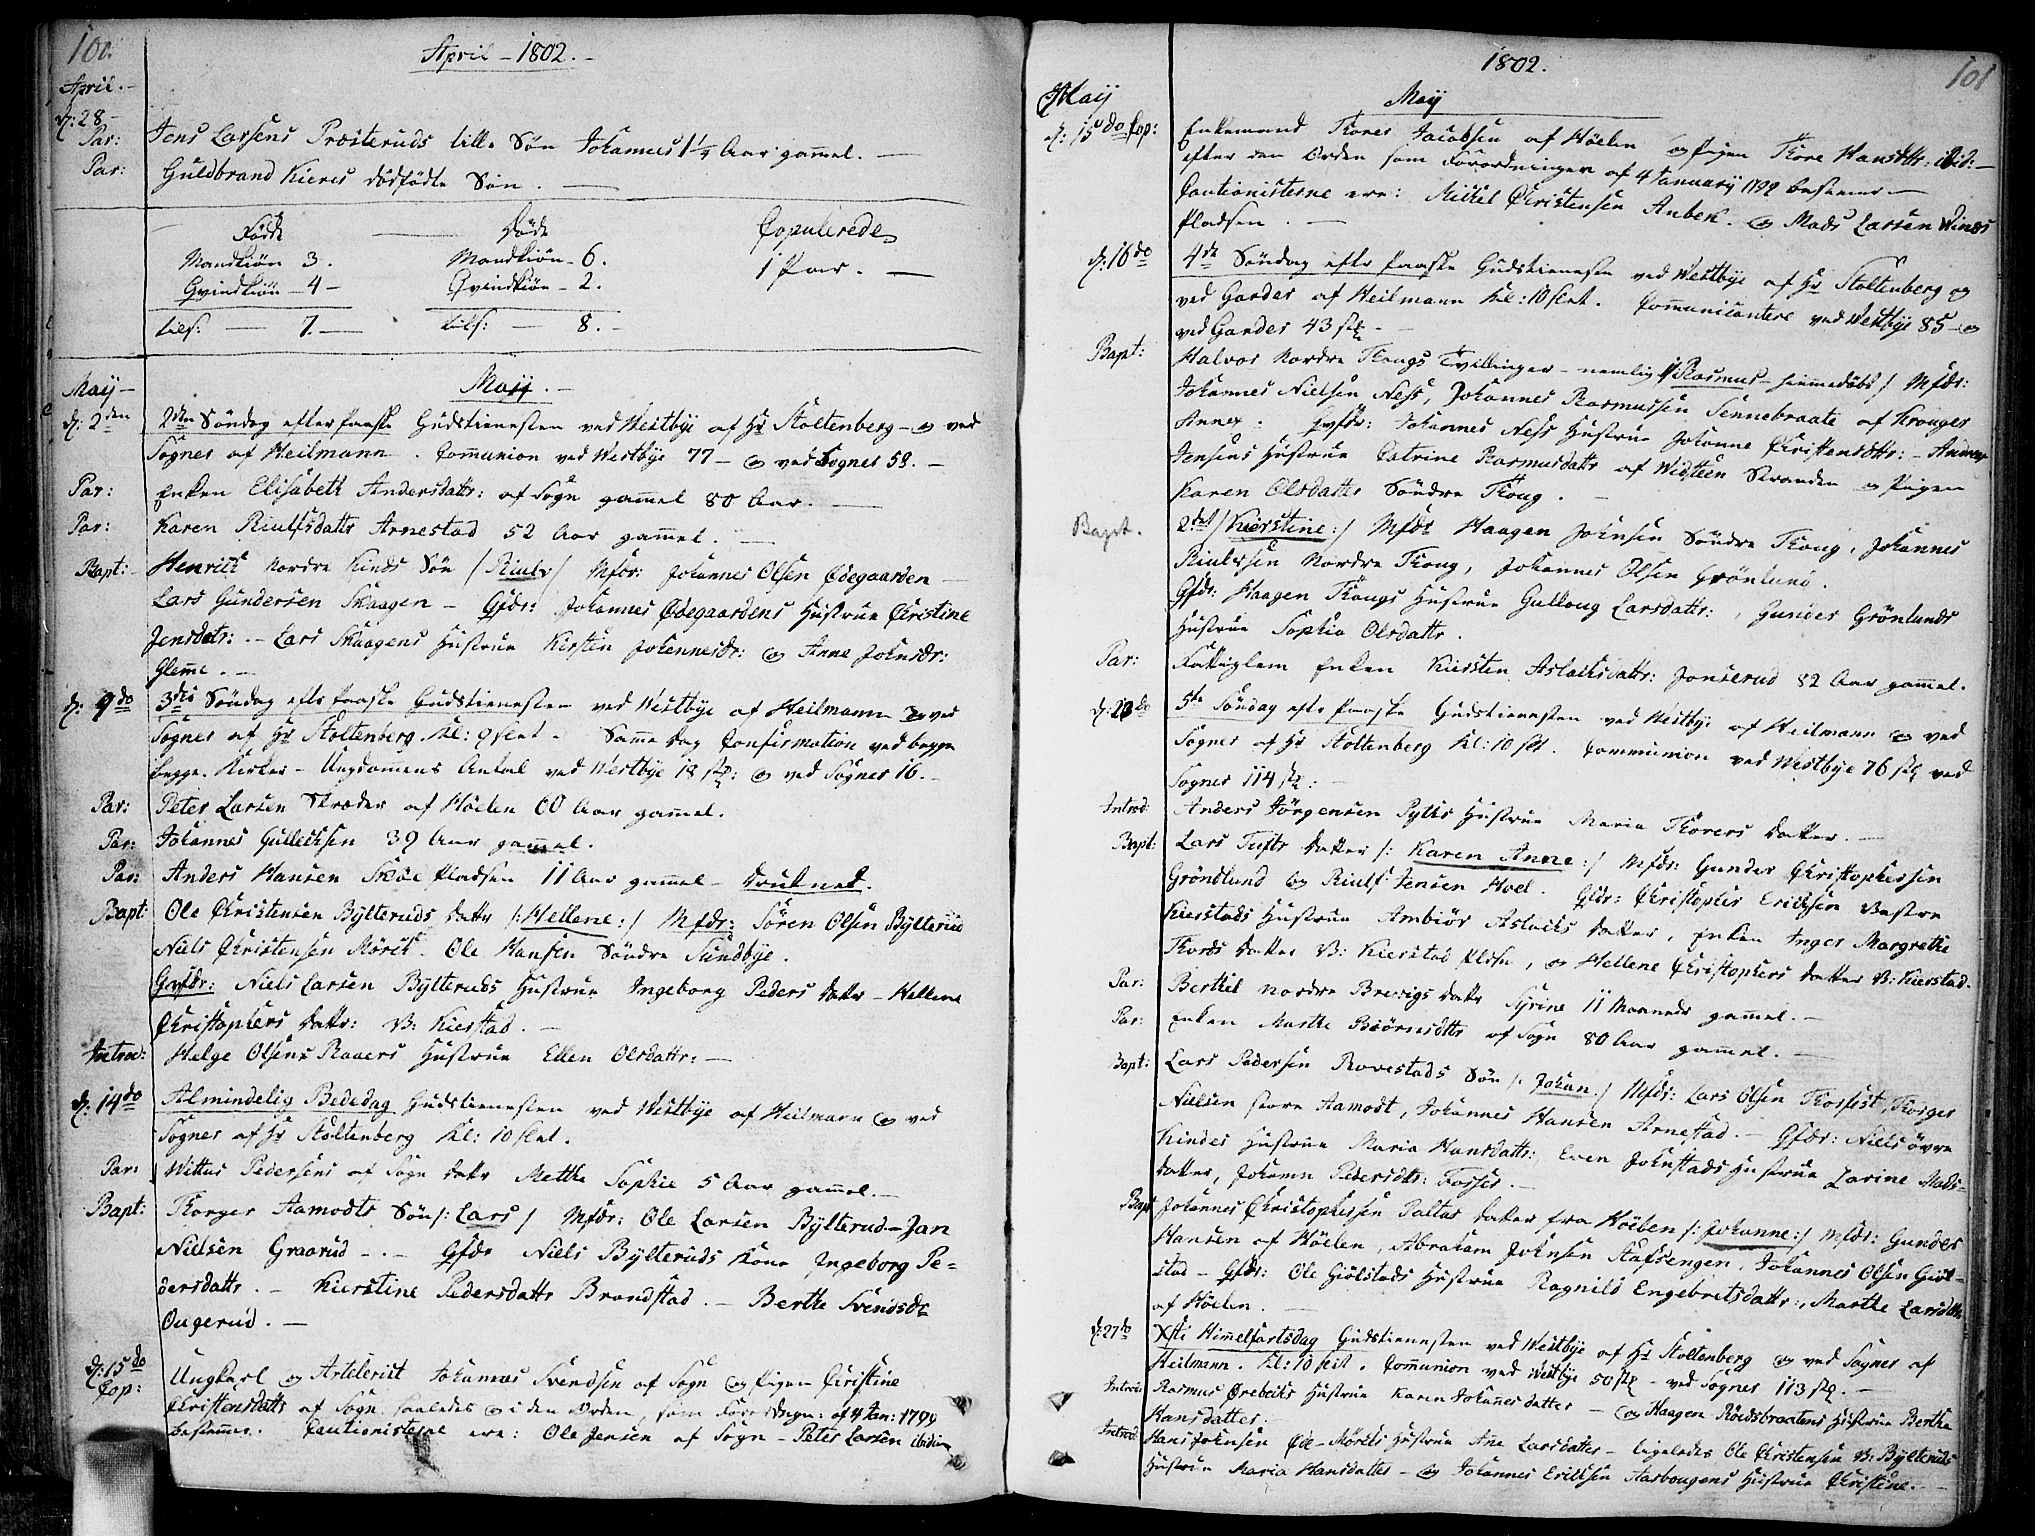 100.
April - 1802. -
April. -
d: 28 -
Par: Jens Larsens Præsteruds lille Søn Johannes 1 1/4 Aar gammel. -
Par: Guldbrand Kieres dødfødte Søn. -
Fødde Døde Copulerede
Mandkiøn 3. Mandkiøn - 6. 1 Par. -
Qvindkiøn - 4 - Qvindkiøn - 2.
tils: - 7. - tils: - 8. -
May - Maÿ. -
d: 2den 2den Søndag efter Paaske Gudstienesten ved Westbye af Hr Stoltenberg - og ved
Sogner af Heilmann. Communion ved Westbÿe 77 - og ved Sogner 58. -
Par: Enken Elisabeth Andersdattr: af Sogn gammel 80 Aar. -
Par: Karen Riulfsdattr Arnestad 52 Aar gammel. -
Bapt: Henrich Nordre Kinds Søn /Riulv/ Mfdr: Johannes Olsen Ødegaarden -
Lars Gundersen Skaagen - Qfdr: Johannes Ødegaardens Hustrue Christine
Jensdatr: - Lars Skaagens Hustrue Kirsten Johannesdr: og Anne Johnsdr:
Glenne. -
d: 9do 3die Søndag efter Paaske Gudstienesten ved Westbye af Heilmann og ved
Sogner af Hr Stoltenberg. Kl: 9 slet. Samme Dag Confirmation ved begge
begge Kirker - Ungdommens Antal ved Westbye 18 stk: og ved Sogner 16. -
Par: Peter Larsen Skræder af Höelen 60 Aar gammel.
Par: Johannes Gullechsen 39 Aar gammel.
Par: Anders Hansen Skoe Pladsen 11 Aar gammel - druknet.
Bapt: Ole Christensen Bÿlteruds dattr /: Hellene :/ Mfdr: Sören Olsen Bÿlterud
Niels Christensen Mörch. Ole Hansen Søndre Sundbÿe.
Qvfdr: Niels Larsen Bÿlteruds Hustrue Ingeborg Peders dattr - Hellene
Christophers dattr: V: Kierstad. -
Introd: Helge Olsens Raaers Hustrue Ellen Olsdattr: -
d: 14do Almindelig Bededag Gudstienesten ved Westbÿe af Heilmann og ved
Sogner af Hr Stoltenberg Kl: 10 slet.
Par: Wittus Pedersens af Sogn dattr Mette Sophie 5 Aar gammel. -
Bapt: Thorger Aamodts Søn /: Lars / Mfdr: Ole Larsen Bÿlterud - Jan
Nielsen Graarud - . - Qfdr Niels Bÿlteruds Kone Ingeborg Pe-
dersdattr. - Kierstine Pedersdattr Brandstad. - Berthe Svendsdr
Ougerud. -
d: 15do
Cop: Ungkarl og Artelerist Johannes Svendsen af Sogn og Pigen Christine
Christensdattr af Sogn saaledes og i den Orden, som Forordngn: af 4 Jan: 1799
bestemmer. Cautionisterne ere: Ole Jensen af Sogn - Peter Larsen ibidem
1802. 101
May Maÿ
d: 15do Cop: Enkemand Thores Jacobsen af Höelen og Pigen Thore Hansdttr: ibid: -
efter den Orden som Forordningen af 4 Januarij 1799 bestemer -
Cautionisterne ere: Mickel Christensen Aubek. og Mads Larsen Winds
Pladsen. -
d: 16do 4de Søndag efter Paaske Gudstienesten ved Westbÿe af Hr Stoltenberg og
ved Garder af Heilmann Kl: 10 slet. Communicantere ved Westbÿe 85 - og
ved Garder 43 stk -
Bapt: Halvor Nordre Thougs Tvillinger - nemlig 1/ Rasmus - hiemmedøbt / Mfdr:
Johannes Nielsen Ness, Johannes Rasmussen Sennebraate af Kroager
Annex. Qvfdr: Johannes Ness Hustrue Johanne Christensdttr: - Anders
Jensens Hustrue Catrine Rasmusdattr af Widsteen Stranden og Pigen
Karen Olsdatter Søndre Thoug. -
Bapt. 2det / Kierstine :/ Mfdr Haagen Johnsen Søndre Thoug, Johannes
Riulvsen Nordre Thoug, Johannes Olsen Grönlund.
Qfdr: Haagen Thougs Hustrue Gulloug Larsdattr:, Gunder Grönlunds
Hustrue Sophia Olsdattr.
Par: Fattiglem Enken Kiersten Aslachsdattr: Jonserud 82 Aar gammel.
d: 23do 5te Søndag efter Paaske Gudstienesten ved Westbÿe af Heilmann og ved
Sogner af Hr Stoltenberg Kl: 10 slet. Communion ved Westbÿe 76 stk ved
Sogner 114 stk. -
Introd: Anders Jörgensen Pÿtts Hustrue Maria Thorers datter. -
Bapt: Lars Tufts datter /: Karen Anne :/ Mfdr: Gunder Christophersen
Gröndlund og Riulf Jensen Hoel. Qfdr: Christopher Erichsen Vestre
Kierstads Hustrue Ambiör Aslachs datter, Enken Inger Margrethe
Thords datter V: Kierstad Pladsn, og Hellene Christophers datter V: Kierstad.
Par: Berthel nordre Brevigs dattr Syrine 11 Maaneder gammel. -
Par: Enken Marthe Biörnsdttr af Sogn 80 Aar gammel. -
Bapt: Lars Pedersen Rovestads Søn /: Johan / Mfdr: Lars Olsen Thorsist, Thorger
Nielsen store Aamodt, Johannes Hansen Arnestad. - Qfdr: Niels övre
Kindes Hustrue Maria Hansdattr: Even Johnstads Hustrue Zarine Mads-
datter, Johanna Pedersdttr: Fosser. -
Bapt Johannes Christophersen Paltas datter fra Höiben /: Johanne :/ Mfdr: Gunder
Hansen af Höelen, Abraham Johnsen Stafsengen, Johannes Olsen Giöl-
stad - Qfdr: Ole Giölstads Hustrue Ragnild Engebretsdattr:, Marthe Larsdttr
af Höelen. -
d: 27do Xsti Himmelfartsdag Gudstienesten ved Westbÿe af Hr Stoltenberg og ved Sogner af
Heilmann. Kl: 10 slet. Communion ved Westbÿe 50 stk - ved Sogner 113 stk. -
Introd: Rasmus Ørebeks Hustrue Karen Johannesdatter - og Haagen Röedsbraatens Hustrue Berthe
Hansdatter.
Introd: Hans Johnsen Öde-Mörchs Hustrue Ane Larsdatter - ligeledes Ole Christensen V: Bÿlteruds
Hustrue Maria Hansdatter - og Johannes Erichsen Aarbougens Hustrue Christine. -